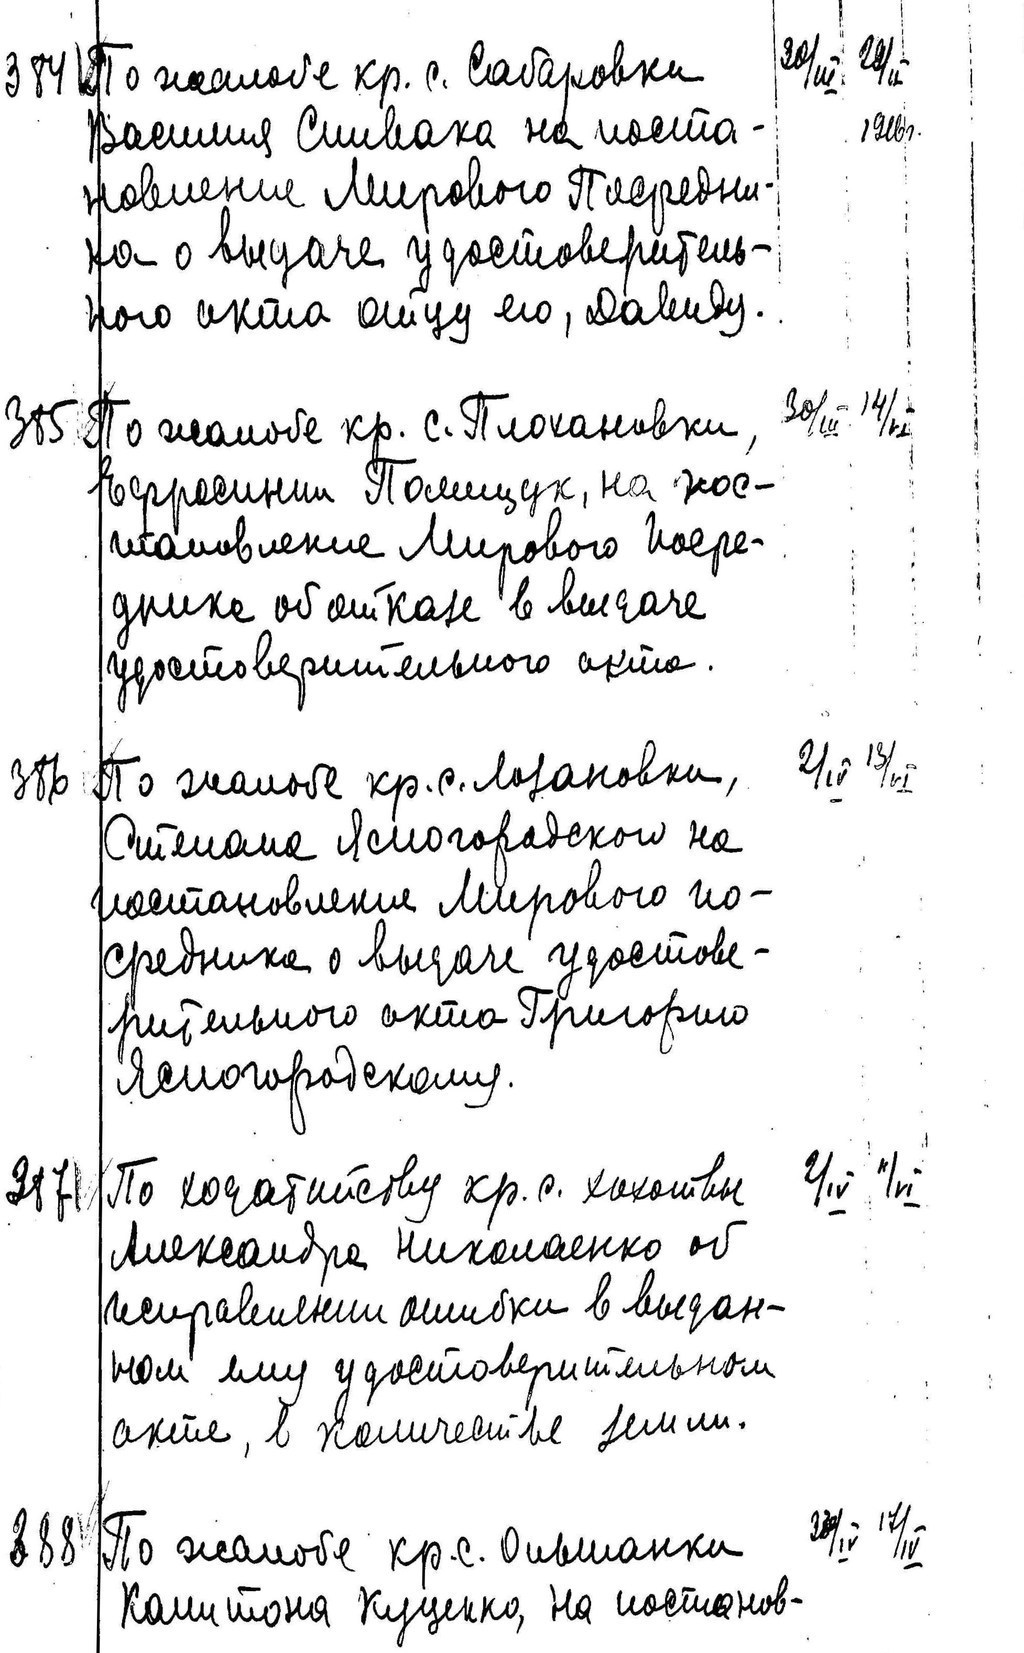 384 По жалобе кр. с. Сабаровки 30/III 29/II
Василия Спивака на поста- 1916г.
новление Мирового Посредни-
ка о выдаче удостоверитель-
ного акта отцу его, Давиду.
385 По жалобе кр. с. Плохановки, 30/III 14/VI
Евфросинии Полищук, на пос-
тановление Мирового Посре-
дника об отказе в выдаче
удостоверительного акта.
386 По жалобе кр. с. Лозановки, 2/IV 13/VI
Степана Ясногородского на
постановление Мирового по-
средника о выдаче удостове-
рительного акта Григорию
Ясногородскому.
387 По ходатайству кр. с. Хохотвы 2/IV 11/VI
Александра Николаенко об
исправлении ошибки в выдан-
ном ему удостоверительном
акте, в количестве земли.
388 По жалобе кр. с. Ольшанки /IV 17/IV
Капитона Куценко, на постанов-